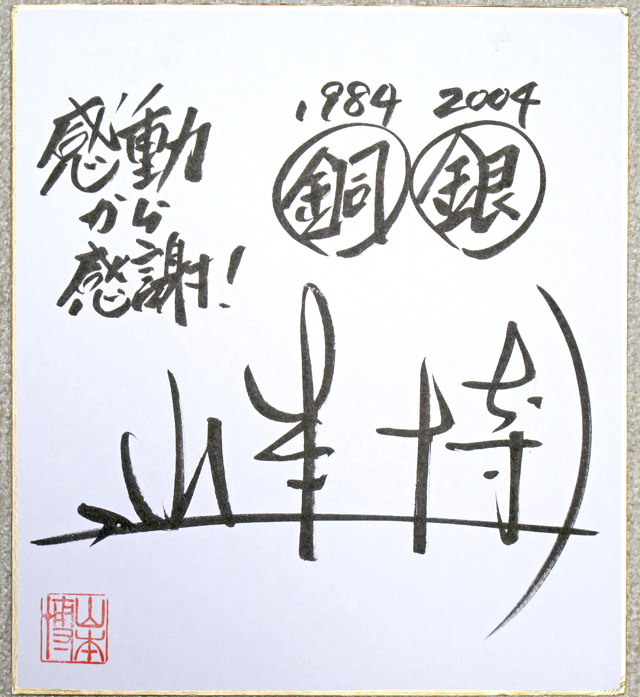 感動
から
感謝!
1984 2004
銅 銀
山本博
山本博